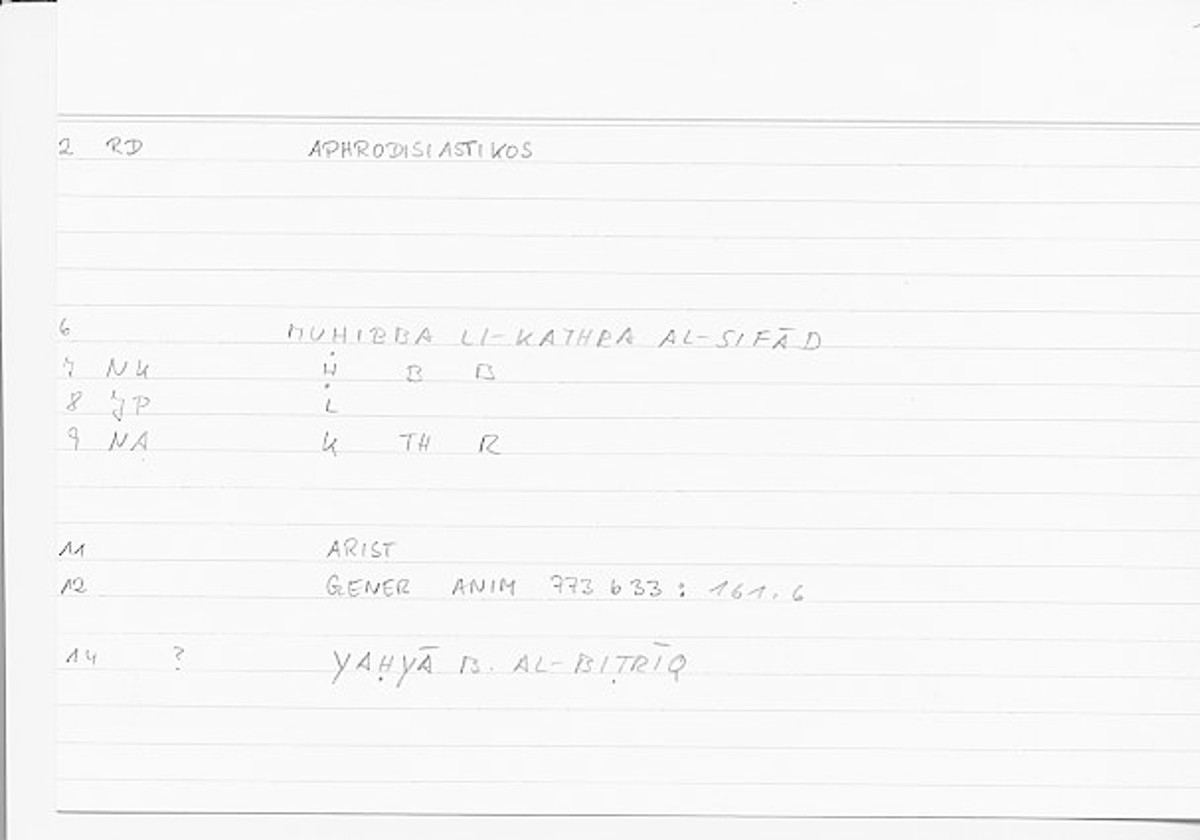 2 RD APHRODISIASTIKOS
6 MUḤIBBA LI-KATHRA AL-SIFĀD
7 NK Ḥ B B
8 JP L
9 NA K TH R
11 ARIST
12 GENER ANIM 773 b 33 : 161.6
14 ? YAḤYĀ B. AL-BIṬRĪQ